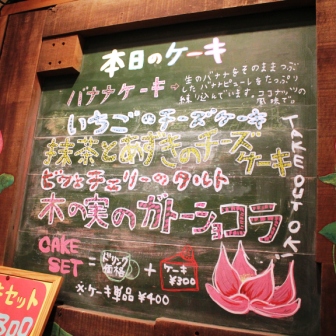 本日のケーキ
バナナケーキ → 生のバナナをそのままつぶ
したバナナピューレをたっぷり
練り込んでいます。ココナッツの
風味で!!
いちごのチーズケーキ
抹茶とあずきのチーズ
ケーキ
ピンクチェリーのタルト
木の実のガトーショコラ
TAKE OUT OK!
CAKE
SET = ドリンク
価格 + ケーキ
¥300
※ケーキ単品 ¥400
セット
300